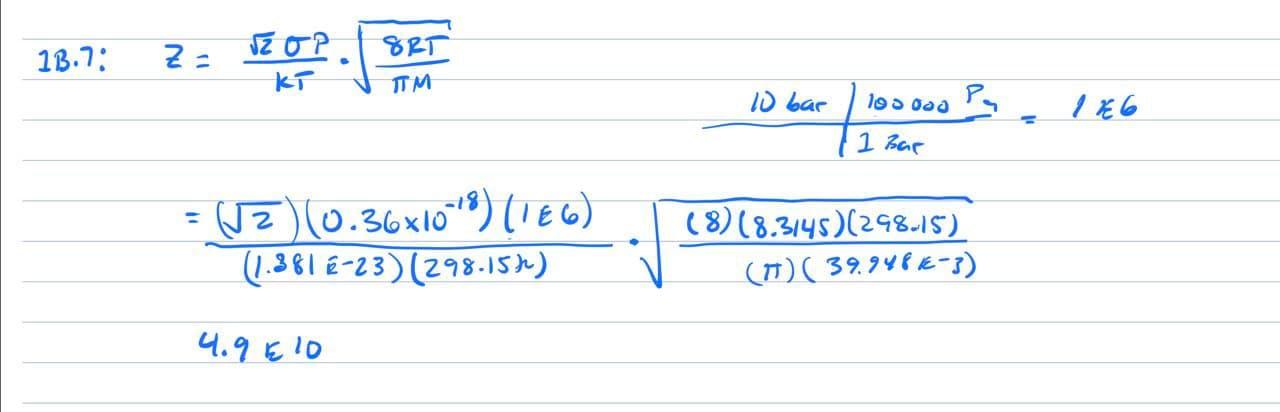 1B.7: Z = √2 σP / kT · √(8RT / πM)
10 bar | 100 000 Pa / 1 Bar = 1 E6
= (√2)(0.36×10^-18)(1E6) / (1.381 E-23)(298.15K) · √((8)(8.3145)(298.15) / (π)(39.948E-3))
4.9 E 10